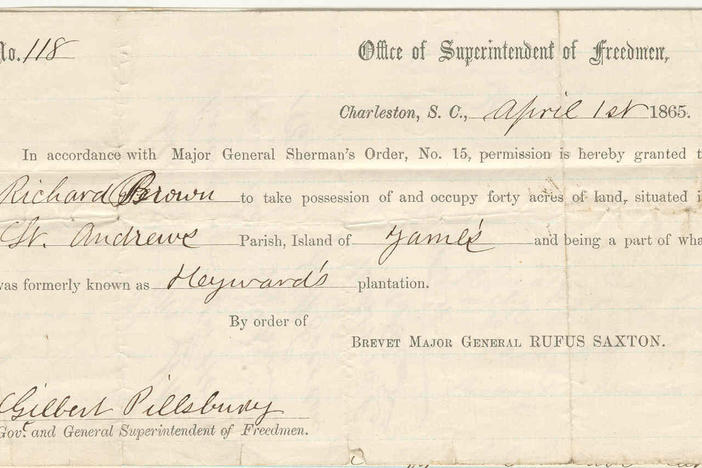 No. 118
Office of Superintendent of Freedmen,
Charleston, S. C., April 1st 1865.
In accordance with Major General Sherman's Order, No. 15, permission is hereby granted t
Richard Brown to take possession of and occupy forty acres of land, situated i
St. Andrews Parish, Island of James and being a part of wha
was formerly known as Heyward's plantation.
By order of
BREVET MAJOR GENERAL RUFUS SAXTON.
Gilbert Pillsbury
Gov't and General Superintendent of Freedmen.